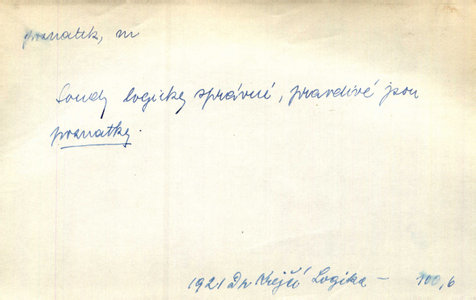 poznatek, m
Soudy logicky správné, pravdivé jsou
poznatky.
1921 Dr Krejčí Logika — 100,6